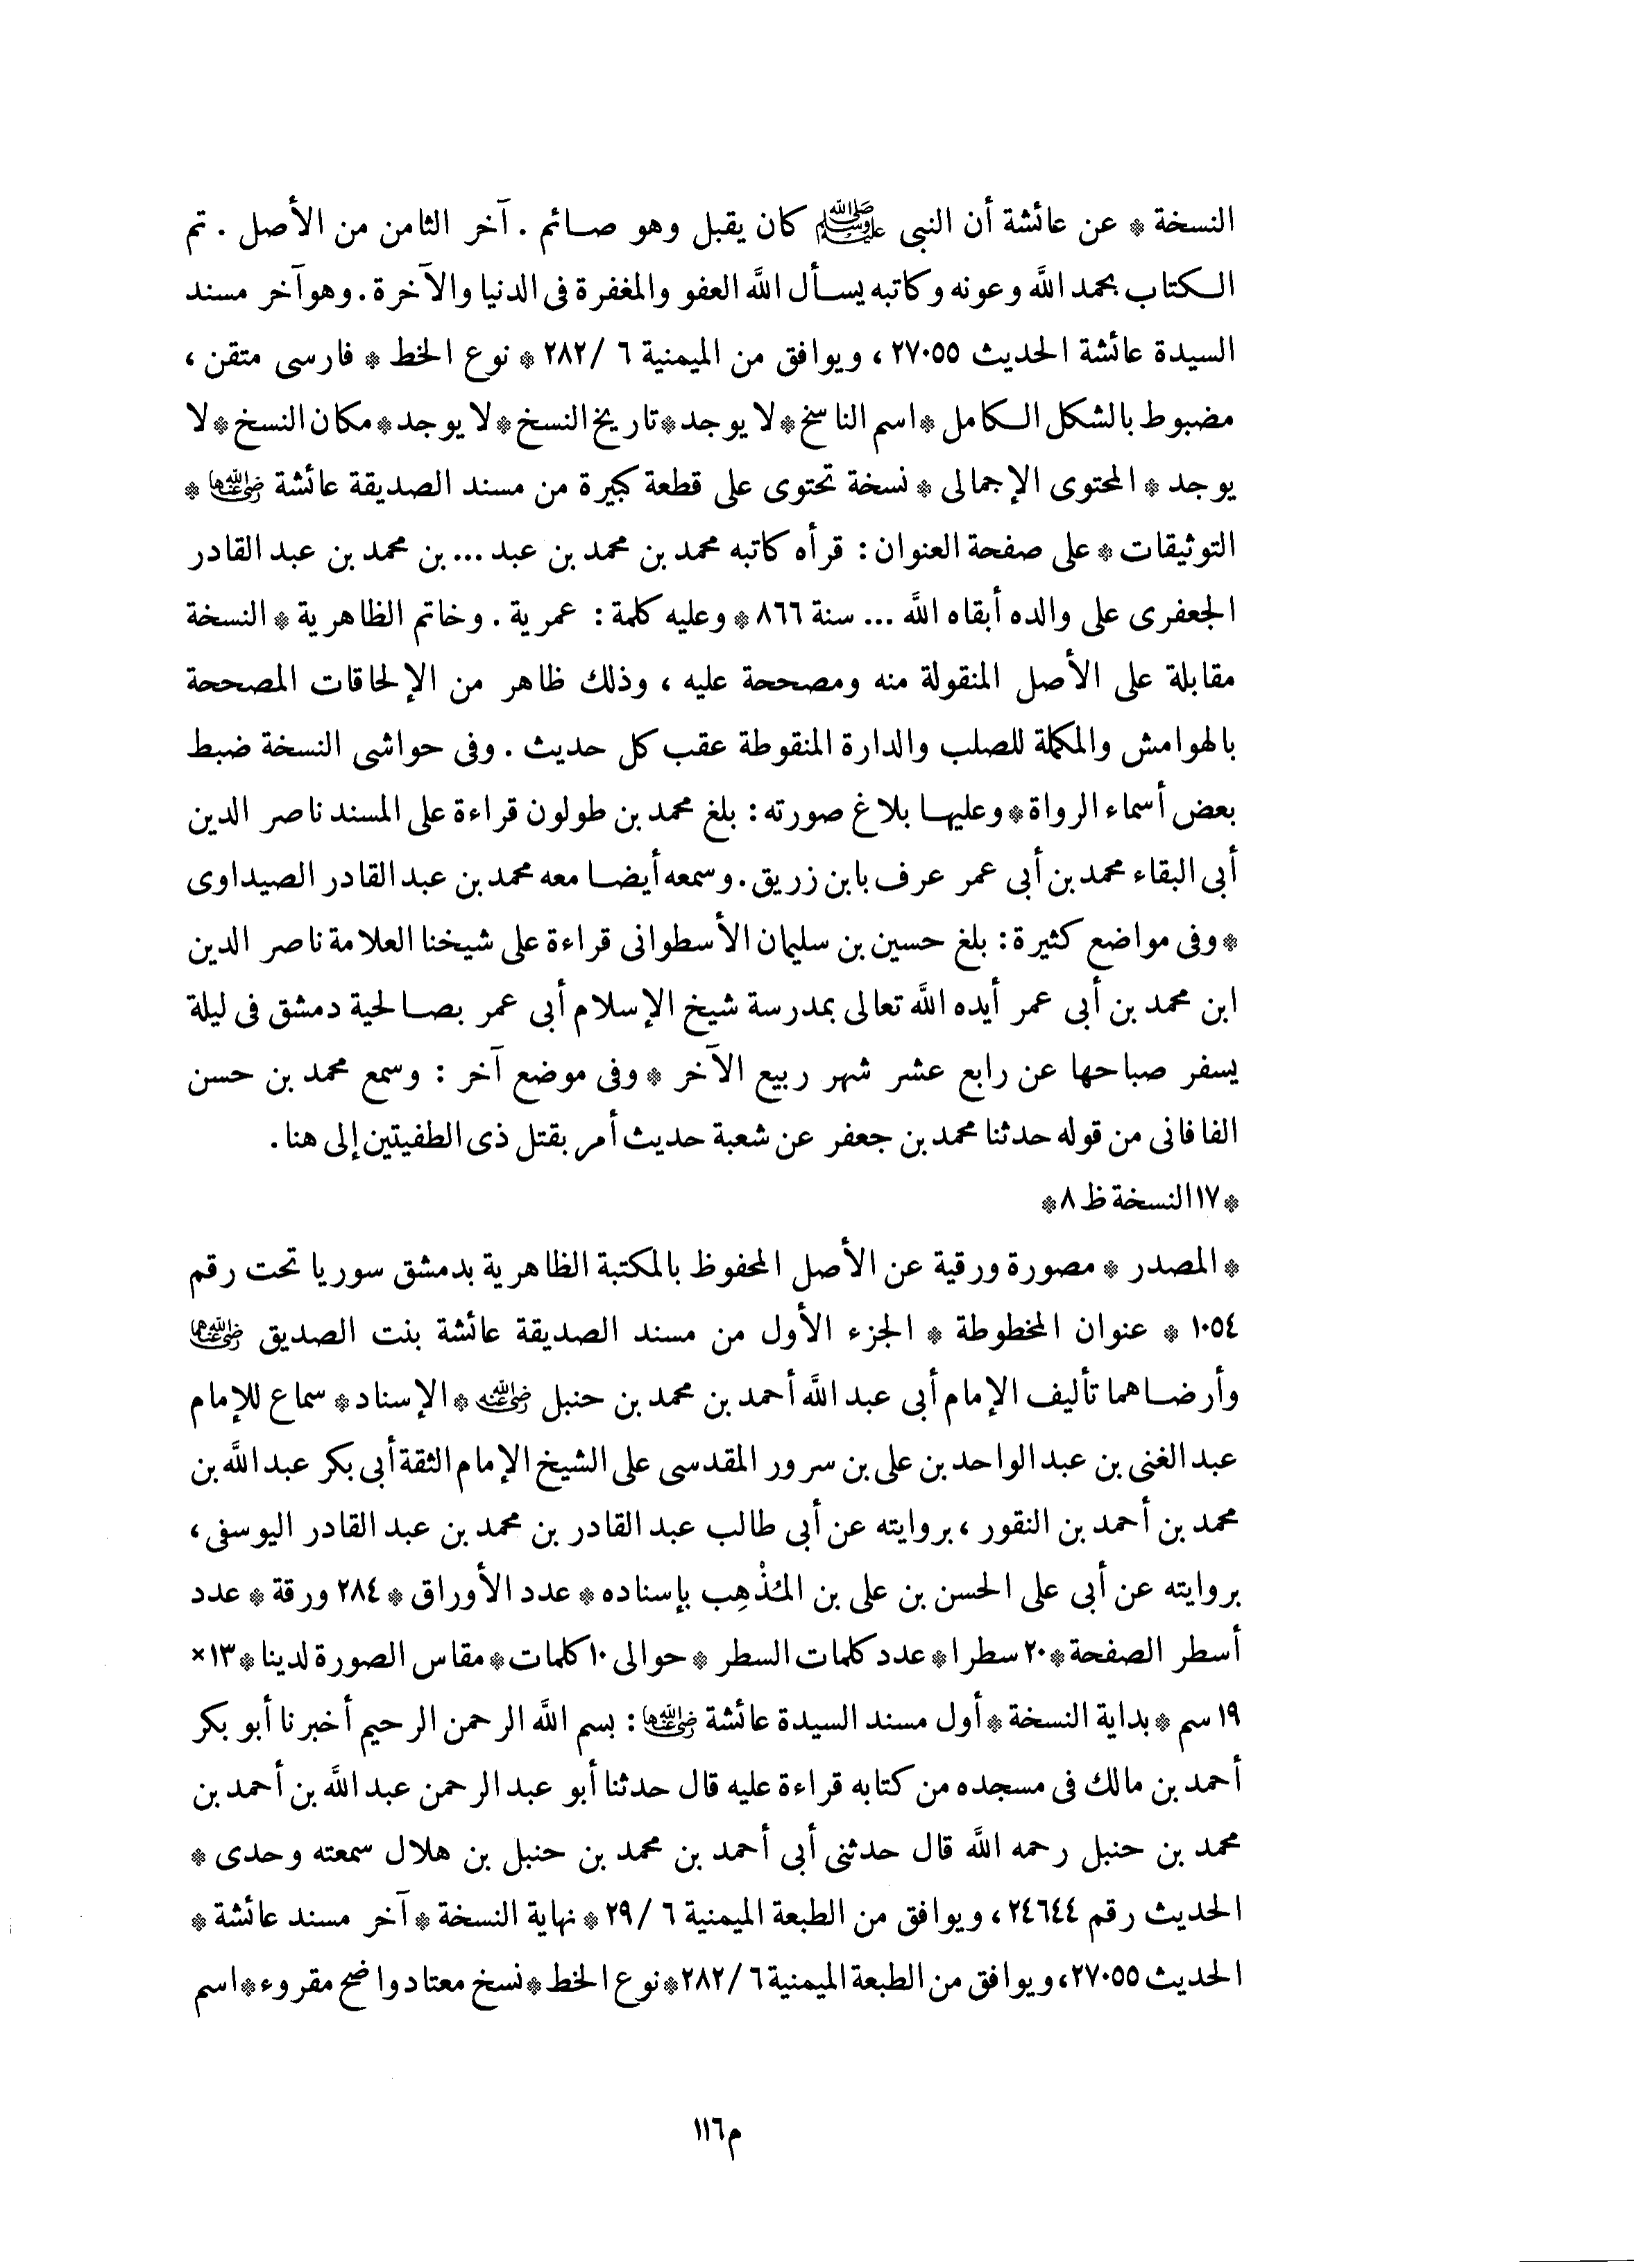 النسخة * عن عائشة أن النبى ﷺ كان يقبل وهو صائم . آخر الثامن من الأصل . تم
الكتاب بحمد الله وعونه وكاتبه يسأل الله العفو والمغفرة فى الدنيا والآخرة . وهو آخر مسند
السيدة عائشة الحديث ٢٧٠٥٥ ، ويوافق من الميمنية ٦ /٢٨٢ * نوع الخط * فارسى متقن ،
مضبوط بالشكل الكامل * اسم الناسخ * لا يوجد * تاريخ النسخ * لا يوجد * مكان النسخ * لا
يوجد * المحتوى الإجمالى * نسخة تحتوى على قطعة كبيرة من مسند الصديقة عائشة رضي الله عنها *
التوثيقات * على صفحة العنوان : قرأه كاتبه محمد بن محمد بن عبد ... بن محمد بن عبد القادر
الجعفرى على والده أبقاه الله ... سنة ٨٦٦ * وعليه كلمة : عمرية . وخاتم الظاهرية * النسخة
مقابلة على الأصل المنقولة منه ومصححة عليه ، وذلك ظاهر من الإلحاقات المصححة
بالهوامش والمكملة للصلب والدارة المنقوطة عقب كل حديث . وفى حواشى النسخة ضبط
بعض أسماء الرواة * وعليها بلاغ صورته : بلغ محمد بن طولون قراءة على المسند ناصر الدين
أبى البقاء محمد بن أبى عمر عرف بابن زريق . وسمعه أيضا معه محمد بن عبد القادر الصيداوى
* وفى مواضع كثيرة : بلغ حسين بن سليمان الأسطوانى قراءة على شيخنا العلامة ناصر الدين
ابن محمد بن أبى عمر أيده الله تعالى بمدرسة شيخ الإسلام أبى عمر بصالحية دمشق فى ليلة
يسفر صباحها عن رابع عشر شهر ربيع الآخر * وفى موضع آخر : وسمع محمد بن حسن
الفافانى من قوله حدثنا محمد بن جعفر عن شعبة حديث أمر بقتل ذى الطفيتين إلى هنا .
* ١٧ النسخة ظ ٨ *
* المصدر * مصورة ورقية عن الأصل المحفوظ بالمكتبة الظاهرية بدمشق سوريا تحت رقم
١٠٥٤ * عنوان المخطوطة * الجزء الأول من مسند الصديقة عائشة بنت الصديق رضي الله عنها
وأرضاهما تأليف الإمام أبى عبد الله أحمد بن محمد بن حنبل رضي الله عنه * الإسناد * سماع للإمام
عبد الغنى بن عبد الواحد بن على بن سرور المقدسى على الشيخ الإمام الثقة أبى بكر عبد الله بن
محمد بن أحمد بن النقور ، بروايته عن أبى طالب عبد القادر بن محمد بن عبد القادر اليوسفى ،
بروايته عن أبى على الحسن بن على بن المُذْهِب بإسناده * عدد الأوراق * ٢٨٤ ورقة * عدد
أسطر الصفحة * ٢٠ سطرا * عدد كلمات السطر * حوالى ١٠ كلمات * مقاس الصورة لدينا * ١٣ ×
١٩ سم * بداية النسخة * أول مسند السيدة عائشة رضي الله عنها : بسم الله الرحمن الرحيم أخبرنا أبو بكر
أحمد بن مالك فى مسجده من كتابه قراءة عليه قال حدثنا أبو عبد الرحمن عبد الله بن أحمد بن
محمد بن حنبل رحمه الله قال حدثنى أبى أحمد بن محمد بن حنبل بن هلال سمعته وحدى *
الحديث رقم ٢٤٦٤٤ ، ويوافق من الطبعة الميمنية ٦ /٢٩ * نهاية النسخة * آخر مسند عائشة *
الحديث ٢٧٠٥٥ ، ويوافق من الطبعة الميمنية ٦ /٢٨٢ * نوع الخط * نسخ معتاد واضح مقروء * اسم
م ١١٦